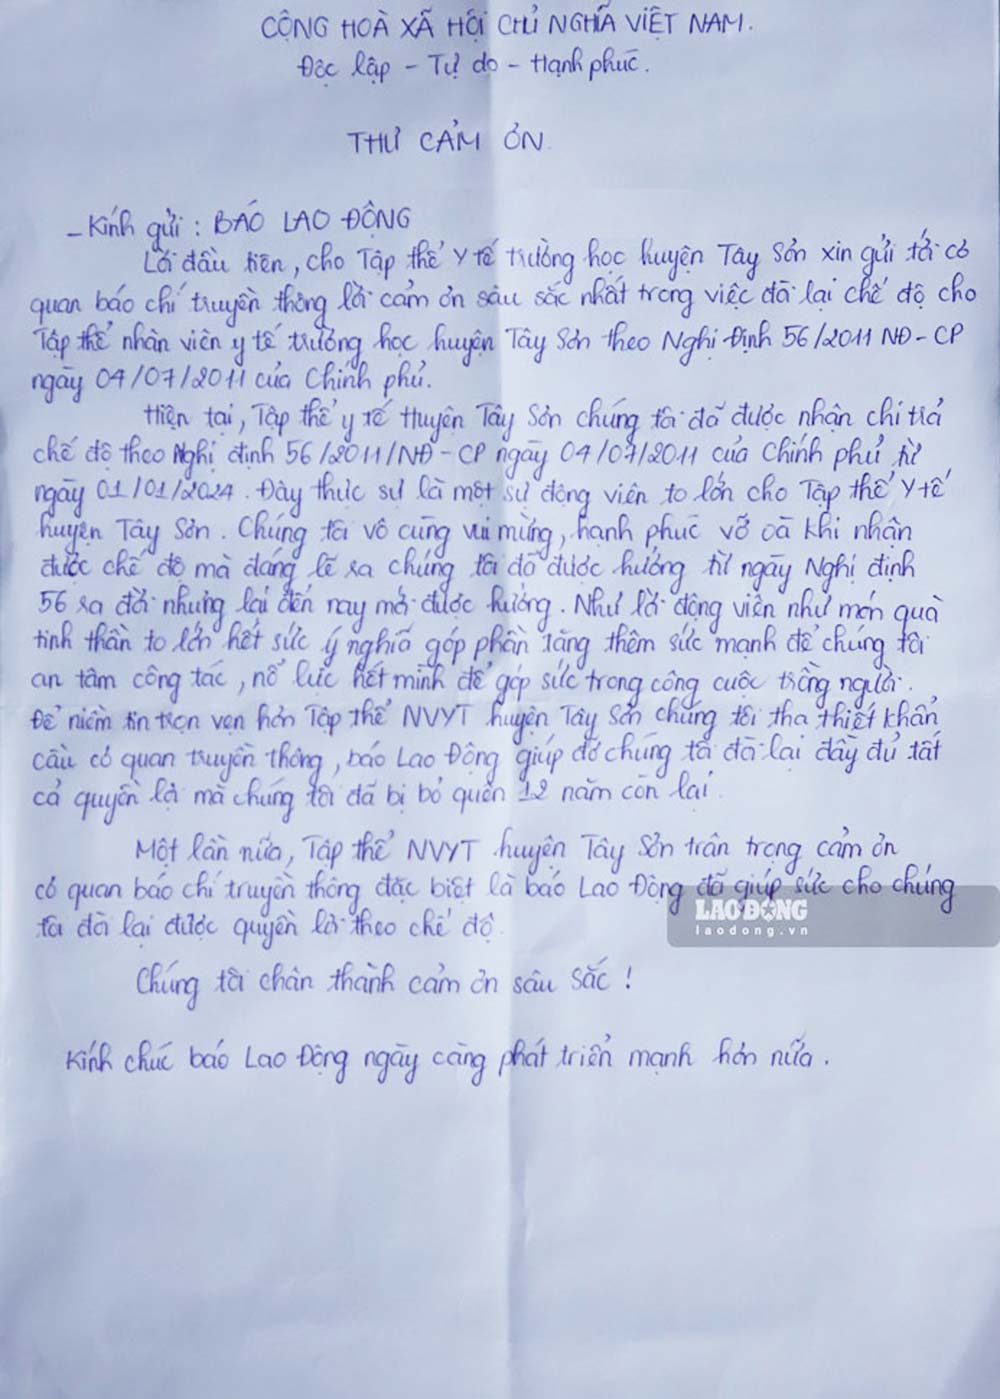 CỘNG HOÀ XÃ HỘI CHỦ NGHĨA VIỆT NAM.
Độc lập - Tự do - Hạnh phúc.
THƯ CẢM ƠN
- Kính gửi : BÁO LAO ĐỘNG
Lời đầu tiên, cho Tập thể Y tế trường học huyện Tây Sơn xin gửi tới cơ
quan báo chí truyền thông lời cảm ơn sâu sắc nhất trong việc đòi lại chế độ cho
Tập thể nhân viên y tế trường học huyện Tây Sơn theo Nghị Định 56/2011 NĐ-CP
ngày 04/07/2011 của Chính phủ.
Hiện tại, Tập thể y tế Huyện Tây Sơn chúng tôi đã được nhận chi trả
chế độ theo Nghị định 56/2011/NĐ-CP ngày 04/07/2011 của Chính phủ từ
ngày 01/01/2024. Đây thực sự là một sự động viên to lớn cho Tập thể Y tế
huyện Tây Sơn. Chúng tôi vô cùng vui mừng, hạnh phúc vỡ oà khi nhận
được chế độ mà đáng lẽ ra chúng tôi đã được hưởng từ ngày Nghị định
56 ra đời nhưng lại đến nay mới được hưởng. Như lời động viên như món quà
tinh thần to lớn hết sức ý nghĩa góp phần tăng thêm sức mạnh để chúng tôi
an tâm công tác, nổ lực hết mình để góp sức trong công cuộc trồng người.
Để niềm tin trọn vẹn hơn Tập thể NVYT huyện Tây Sơn chúng tôi tha thiết khẩn
cầu cơ quan truyền thông, báo Lao Động giúp đỡ chúng tôi đòi lại đầy đủ tất
cả quyền lợi mà chúng tôi đã bị bỏ quên 12 năm còn lại.
Một lần nữa, Tập thể NVYT huyện Tây Sơn trân trọng cảm ơn
cơ quan báo chí truyền thông đặc biệt là báo Lao Động đã giúp sức cho chúng
tôi đòi lại được quyền lợi theo chế độ.
LAO ĐỘNG
laodong.vn
Chúng tôi chân thành cảm ơn sâu sắc !
Kính chúc báo Lao Động ngày càng phát triển mạnh hơn nữa.